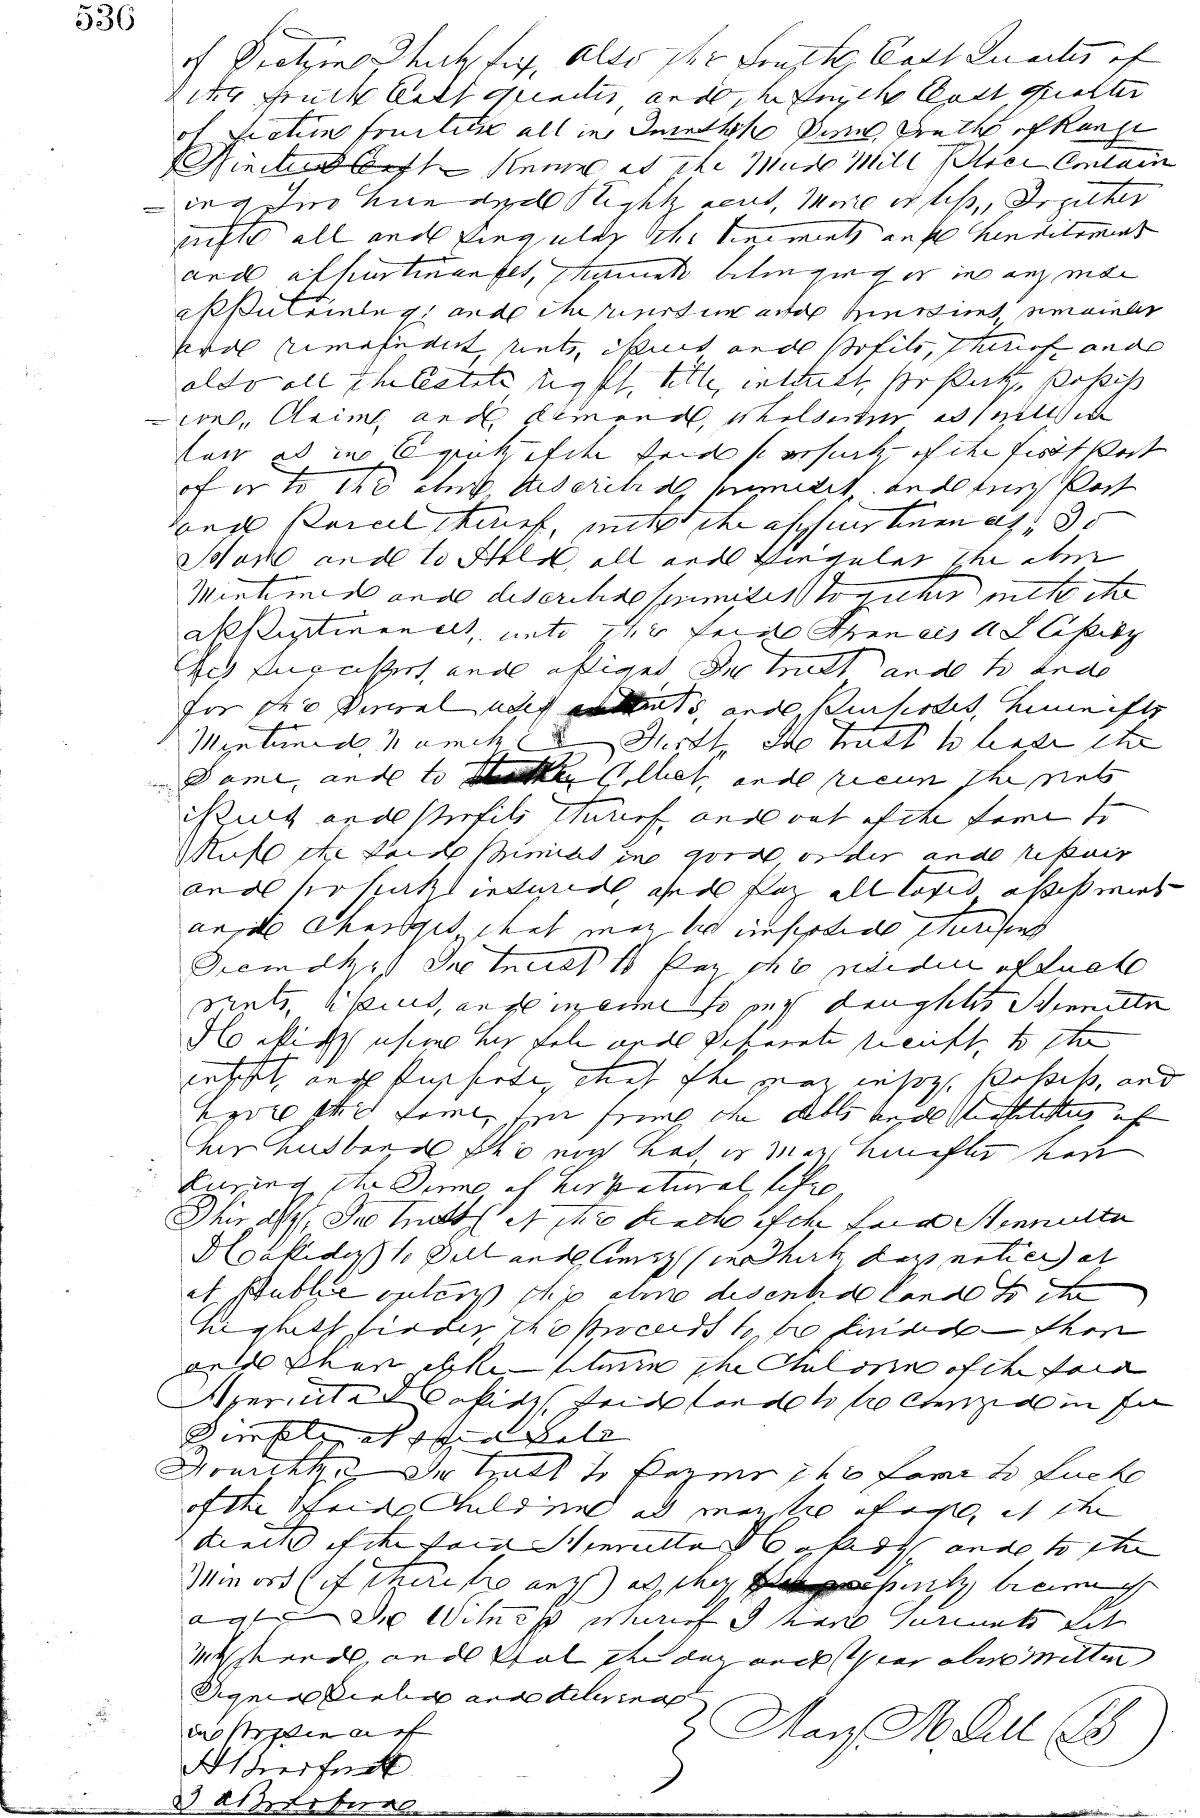 536
of Section Thirty six, also the South East Quarter of
the South East quarter, and the South East quarter
of Section fourteen all in Township Seven South of Range
Nineteen East Known as the Mud Mill Place Contain
=ing Two hundred & Eighty acres, More or less, Together
with all and singular the tenements and heriditaments
and appurtinances, thereunto belonging or in any wise
appertaining; and the reversion and reversions, remainder
and remainders, rents, issues, and profits, thereof, and
also all the Estate, right, title, interest, property, possess
=ion, Claim, and demand, whatsoever as well in
law as in Equity of the said property of the first Part
of or to the above described, premises, and every Part
and Parcel thereof, with the appurtinances, To
Have and to Hold, all and singular the above
Mentioned and described premises together with the
appurtinances, unto the said Francis A L
his successors, and assigns In trust and to and
for the several uses and purposes, hereinafter
Mentioned, Namely First, In trust to lease the
Same, and to Collect, and receive the rents
issues and profits thereof, and out of the same to
Keep the said premises in good order and repair
and properly insured, and pay all taxes assessments
and Charges, that may be imposed thereon
Secondly, In trust to Pay the residue of such
rents, issues, and income to my daughter Henrietta
upon her sole and separate receipt, to the
intent, and purpose, that she may enjoy, possess, and
have the same, free from the debts and liabilities of
her husband she now has or may hereafter have
during the Time of her natural life
Thirdly, In trust at the death of the said Henrietta
to Sell and Convey (in Thirty days notice) at
at Public outcry the above described land to the
highest bidder, the proceeds to be divided — share
and share alike — between the Children of the said
Henrietta said land to be conveyed in fee
Simple, at said Sale
Fourthly, In trust to Pay over the same to such
of the said Children as may be of age, at the
death of the said Henrietta and to the
Minors (if there be any) as they become of
age — In Witness whereof I have hereunto set
My hand, and Seal the day and Year above written
Signed Sealed and delivered
in presence of
Mary M. Dell (LS)